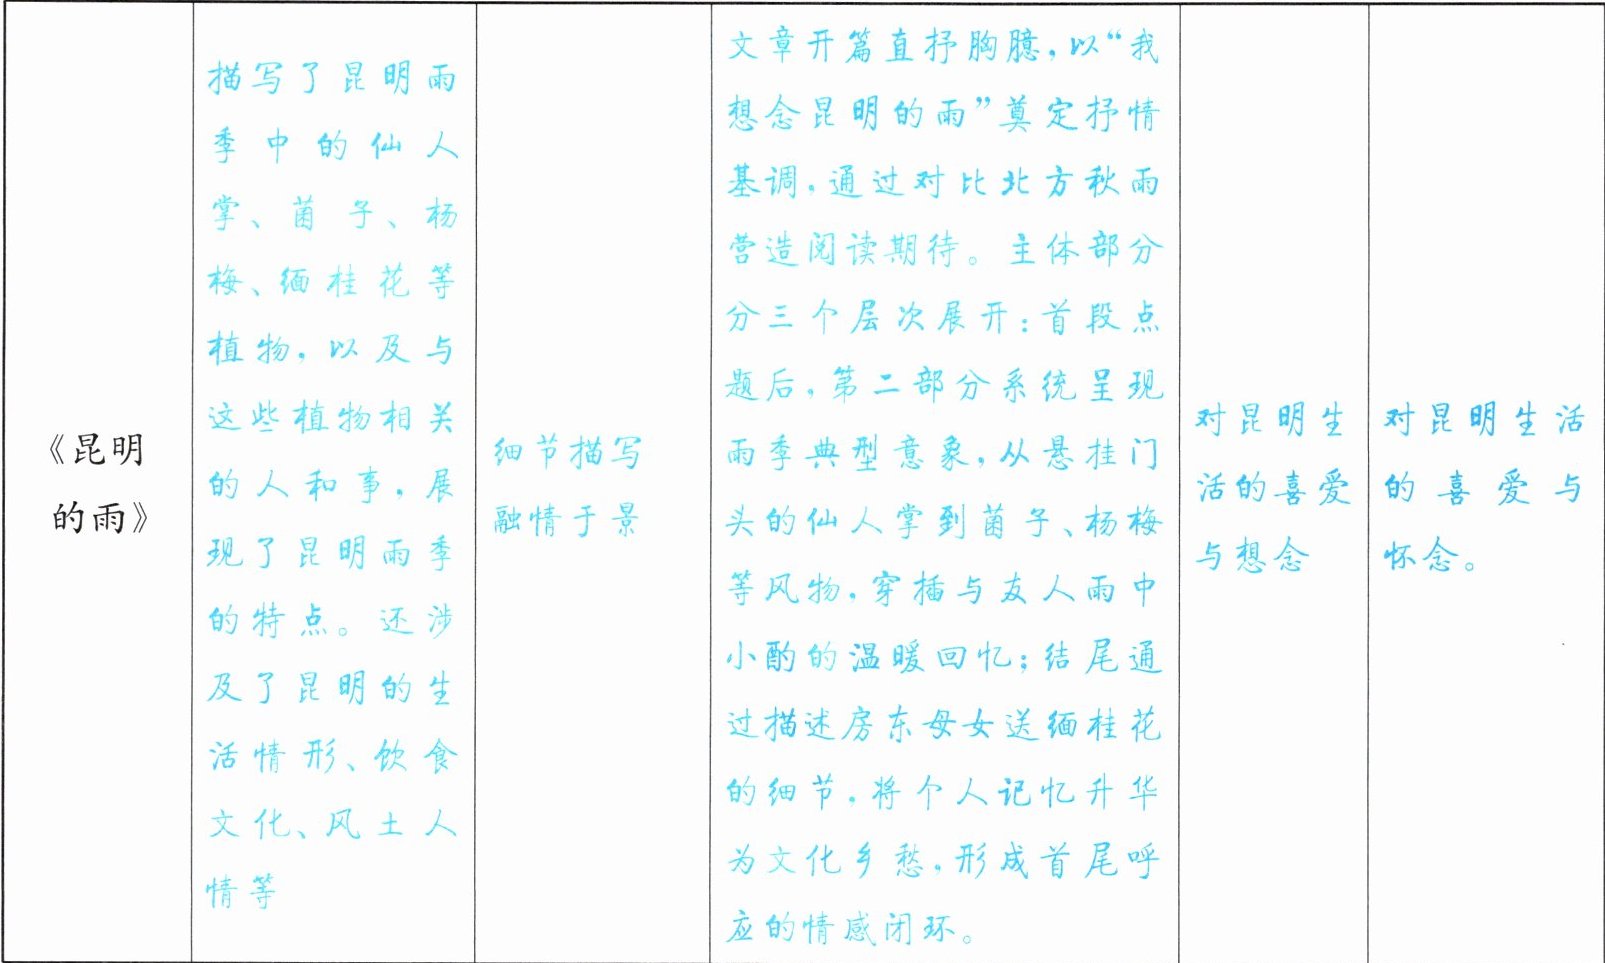 《昆明
的雨》
描写了昆明雨
季中的仙人
掌、菌子、杨
梅、缅桂花等
植物，以及与
这些植物相关
的人和事，展
现了昆明雨季
的特点。还涉
及了昆明的生
活情形、饮食
文化、风土人
情等
细节描写
融情于景
文章开篇直抒胸臆，以“我
想念昆明的雨”奠定抒情
基调，通过对比北方秋雨
营造阅读期待。主体部分
分三个层次展开：首段点
题后，第二部分系统呈现
雨季典型意象，从悬挂门
头的仙人掌到菌子、杨梅
等风物，穿插与友人雨中
小酌的温暖回忆；结尾通
过描述房东母女送缅桂花
的细节，将个人记忆升华
为文化乡愁，形成首尾呼
应的情感闭环。
对昆明生
活的喜爱
与想念
对昆明生活
的喜爱与
怀念。